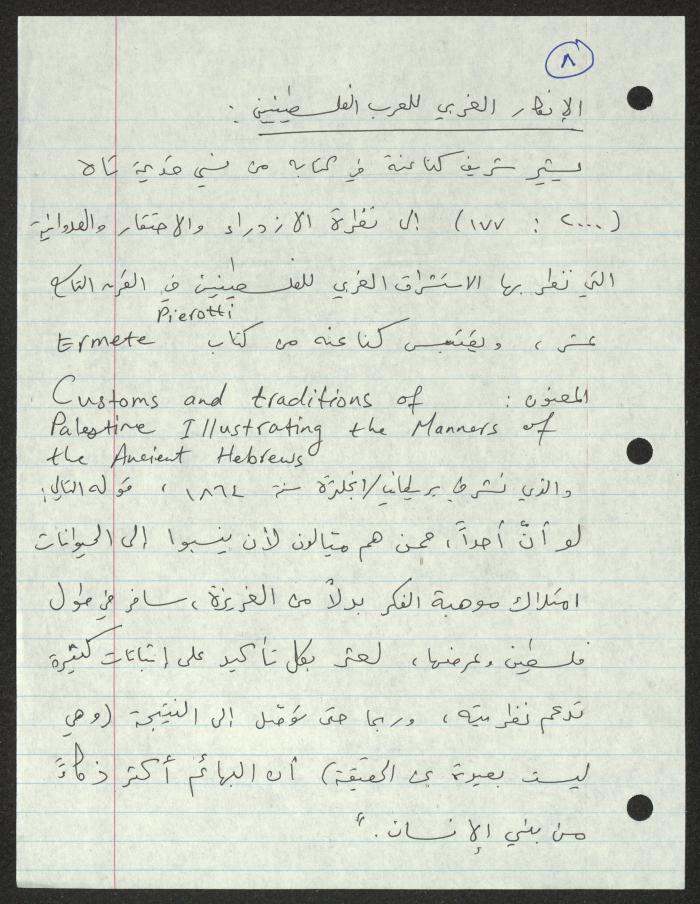 ٨
الإنكار الغربي للعرب الفلسطينيين :
يشير شريف كناعنة في كتابه من نسي قديمه تاه
(٢٠٠٠ : ١٧٧) إلى نظرة الازدراء والاحتقار والعدوانية
التي نظر بها الاستشراق الغربي للفلسطينيين في القرن التاسع
Pierotti
عشر ، ويقتبس كناعنه من كتاب Ermete
المعنون : Customs and traditions of
Palestine Illustrating the Manners of
the Ancient Hebrews
والذي نشر في بريطانيا/انجلترة سنة ١٨٦٤ ، قوله التالي:
لو أنّ أحداً، ممن هم ميالون لأن ينسبوا إلى الحيوانات
امتلاك موهبة الفكر بدلاً من الغريزة ، سافر في طول
فلسطين وعرضها، لعثر بكل تأكيد على إثباتات كثيرة
تدعم نظريته ، وربما حتى توصّل إلى النتيجة (وهي
ليست بعيدة عن الحقيقة) أن البهائم أكثر ذكاءً
من بني الإنسان . "